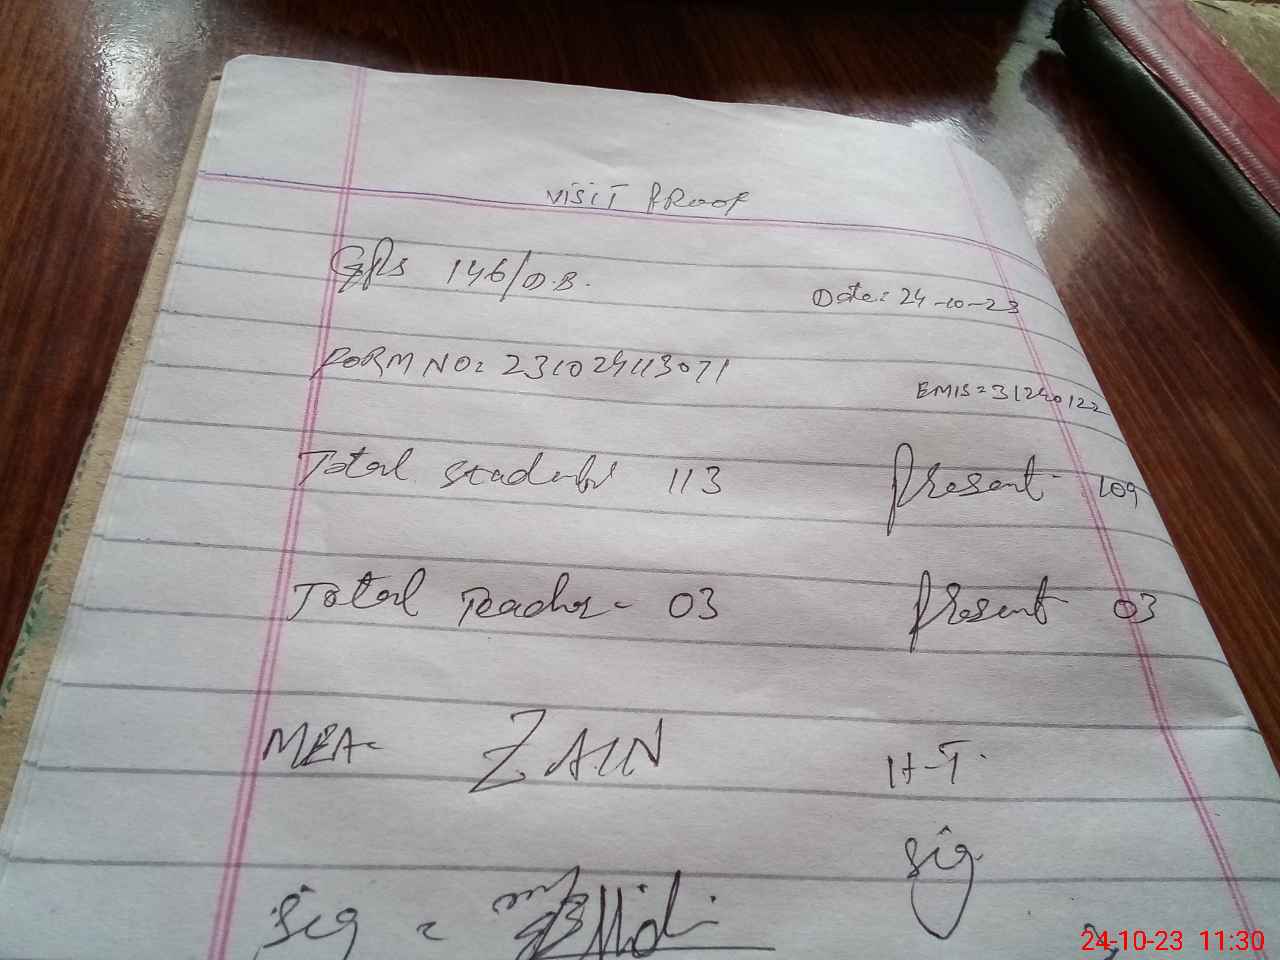 VISIT PROOF
GPS 146/D.B.
Date: 24-10-23
FORM NO: 231024113071
EMIS = 31240122
Total students 113 Present 109
Total Teacher - 03 Present 03
MEA - ZAIN H-T.
Sig
Sig =
24-10-23 11:30